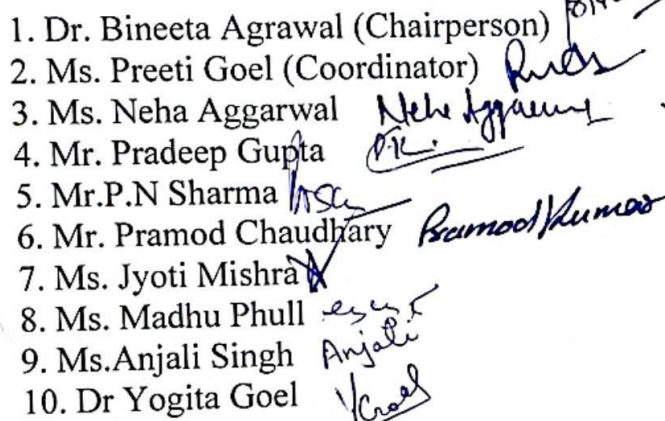 1. Dr. Bineeta Agrawal (Chairperson)
2. Ms. Preeti Goel (Coordinator)
3. Ms. Neha Aggarwal Neha Aggarwal
4. Mr. Pradeep Gupta P.K.
5. Mr.P.N Sharma
6. Mr. Pramod Chaudhary Pramod Kumar
7. Ms. Jyoti Mishra
8. Ms. Madhu Phull
9. Ms.Anjali Singh Anjali
10. Dr Yogita Goel YGoel